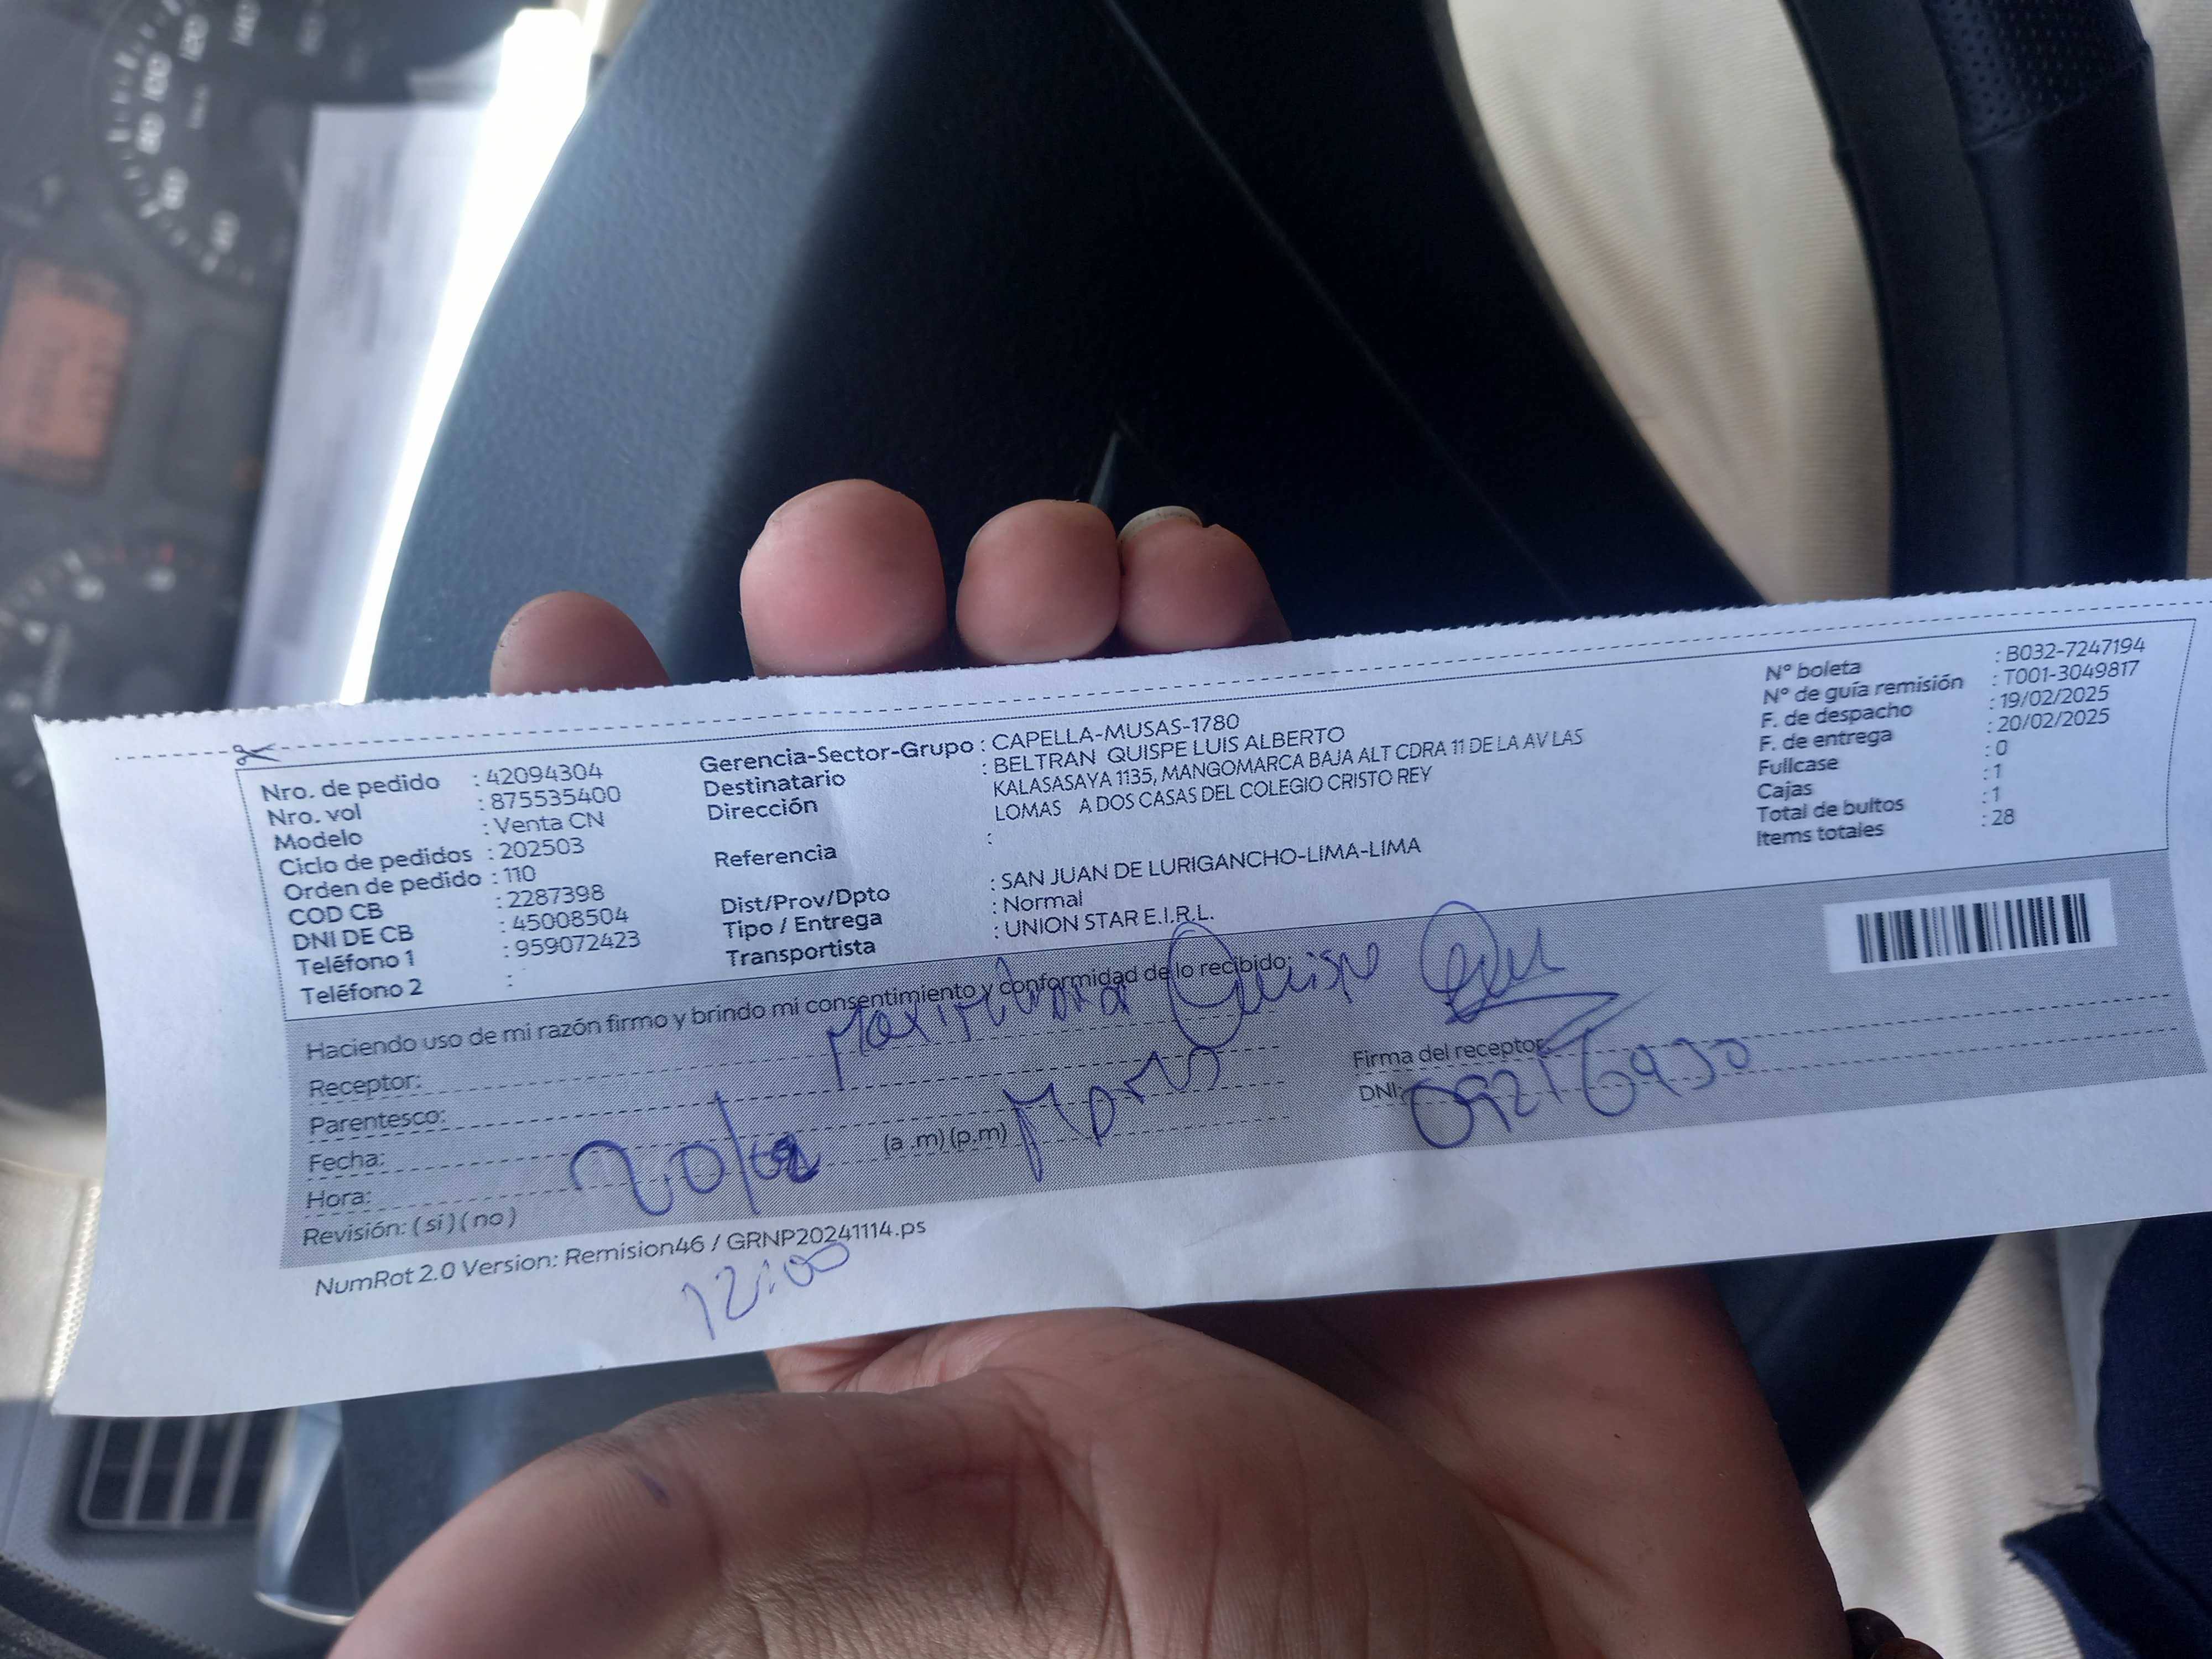 Nro. de pedido : 42094304
Nro. vol : 875535400
Modelo : Venta CN
Ciclo de pedidos : 202503
Orden de pedido : 110
COD CB : 2287398
DNI DE CB : 45008504
Teléfono 1 : 959072423
Teléfono 2 :
Gerencia-Sector-Grupo : CAPELLA-MUSAS-1780
Destinatario : BELTRAN QUISPE LUIS ALBERTO
Dirección KALASASAYA 1135, MANGOMARCA BAJA ALT CDRA 11 DE LA AV LAS
LOMAS A DOS CASAS DEL COLEGIO CRISTO REY
Referencia :
Dist/Prov/Dpto : SAN JUAN DE LURIGANCHO-LIMA-LIMA
Tipo / Entrega : Normal
Transportista : UNION STAR E.I.R.L.
N° boleta : B032-7247194
N° de guía remisión : T001-3049817
F. de despacho : 19/02/2025
F. de entrega : 20/02/2025
Fullcase : 0
Cajas : 1
Total de bultos : 1
Items totales : 28
Haciendo uso de mi razón firmo y brindo mi consentimiento y conformidad de lo recibido:
Receptor: Quispe
Parentesco:
Fecha: 20/02
Hora: (a .m) (p.m)
Revisión: ( si ) ( no )
Firma del receptor
DNI:
NumRot 2.0 Version: Remision46 / GRNP20241114.ps
12:00